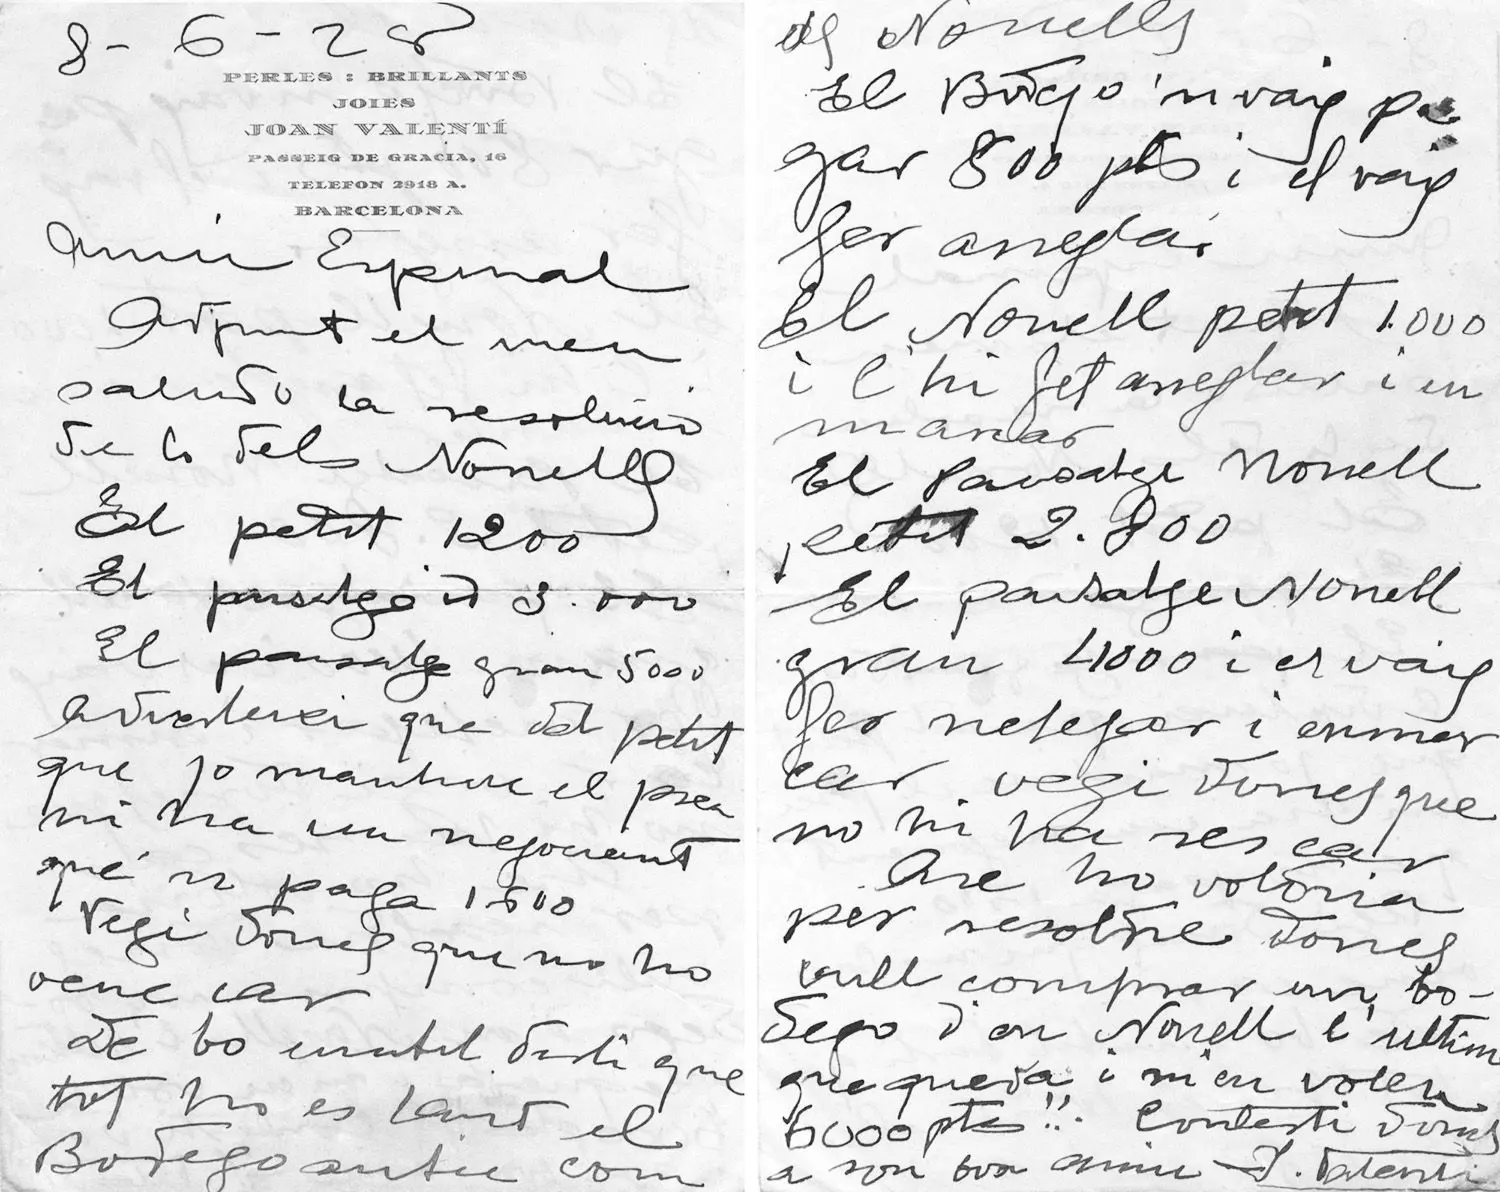 8-6-28
PERLES : BRILLANTS
JOIES
JOAN VALENTÍ
PASSEIG DE GRACIA, 16
TELEFON 2918 A.
BARCELONA
Amic Espinal
Adjunt el meu
saludo la resolució
de lo dels Nonells
El petit 1200
El paisatge id 3.000
El paisatge gran 5000
Adverteixi que del petit
que jo mantinc el preu
ni ha un negociant
qué 'n paga 1500
Vegi dones que no ho
venc car
De bo inutil dirli que
tot ho es tant el
Bodego antic com
els Nonells
El Bodego 'n vaig pa
gar 800 pts i el vaig
fer arreglar
El Nonell petit 1.000
i l'hi fet arreglar i en
marcar
El Paisatge Nonell
petit 2.800
El paisatge Nonell
gran 4000 i el vaig
fer netejar i enmar
car vegi dones que
no hi ha res car
Are ho voldria
per resoldre dones
vull comprar un bo-
dego d'en Nonell l'ultim
que queda i m'en volen
6000 pts!! Contesti dones
a son bon amic J. Valenti